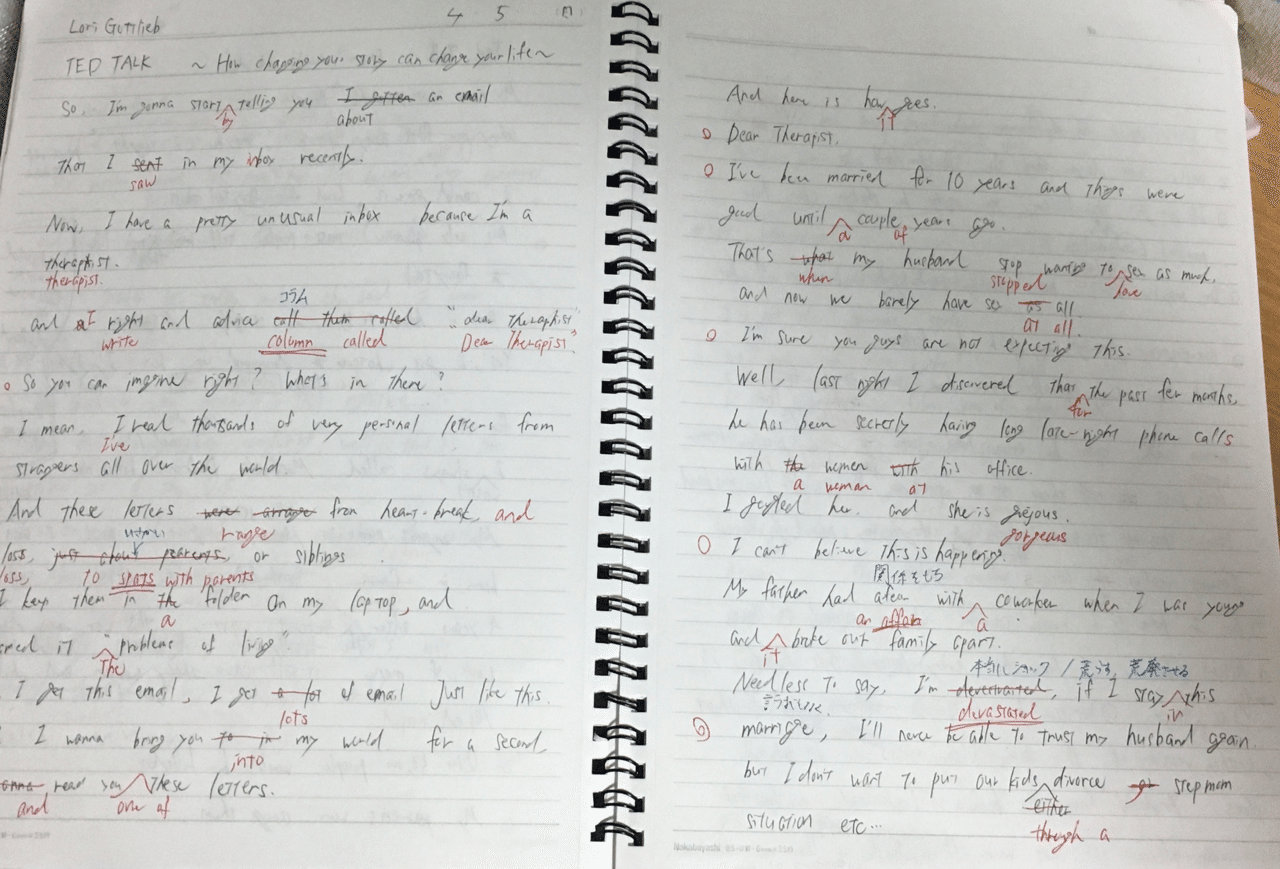 Lori Gottlieb
4 5 日
TED TALK ~ How changing your story can change your life ~
So, I'm gonna start telling you I gotten an email
by about
that I sent in my inbox recently.
saw
Now, I have a pretty unusual inbox because I'm a
theraphist.
therapist.
コラム
and I right and advice call them called "dear therapist"
write column called Dear Therapist"
So you can imagine right? What's in there?
I mean, I read thousands of very personal letters from
I've
strangers all over the world
And these letters were arrange from heart-break, and
range
loss, just about parents, or siblings
loss, to spats with parents
I keep them in the folder on my laptop, and
a
it "problems of living"
The
I get this email, I get a lot of email just like this.
lots
I wanna bring you to in my world for a second,
into
read you these letters.
and one of
And here is how goes.
it
Dear Therapist,
I've been married for 10 years and things were
good until couple years ago.
a of
That's what my husband stop wanting to sex as much,
when stopped have
and now we barely have sex as all.
at all.
I'm sure you guys are not expecting this.
Well, last night I discovered that the past few months,
for
he has been secretly having long late-night phone calls
with the women with his office.
a woman at
I googled her, and she is gejous.
gorgeous
I can't believe this is happening.
関係をもち
My father had afear with coworker when I was young
an affair a
and broke our family apart.
it
本当にショック / 荒らす、荒廃させる
Needless to say, I'm, if I stay this
devastated in
marrige, I'll never be able to trust my husband again.
but I don't want to put our kids, divorce or stepmom
either
situation etc...
through a
Nakabayashi